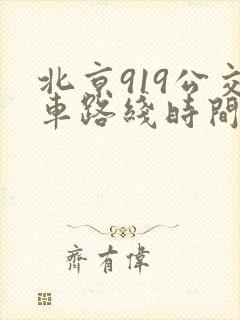 北京919公交
車路綫時間
齊有偉